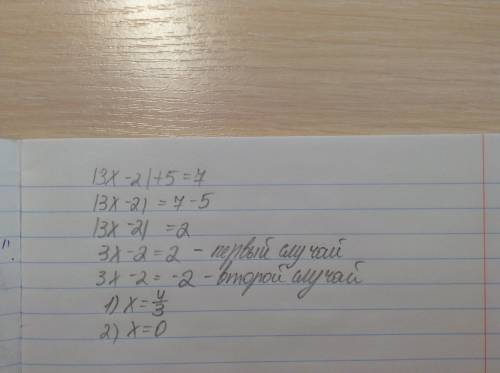 |3x-2|+5=7
|3x-2| = 7-5
|3x-2| =2
3x-2=2 - первый случай
3x-2= -2 - второй случай
1) x=4/3
2) x=0